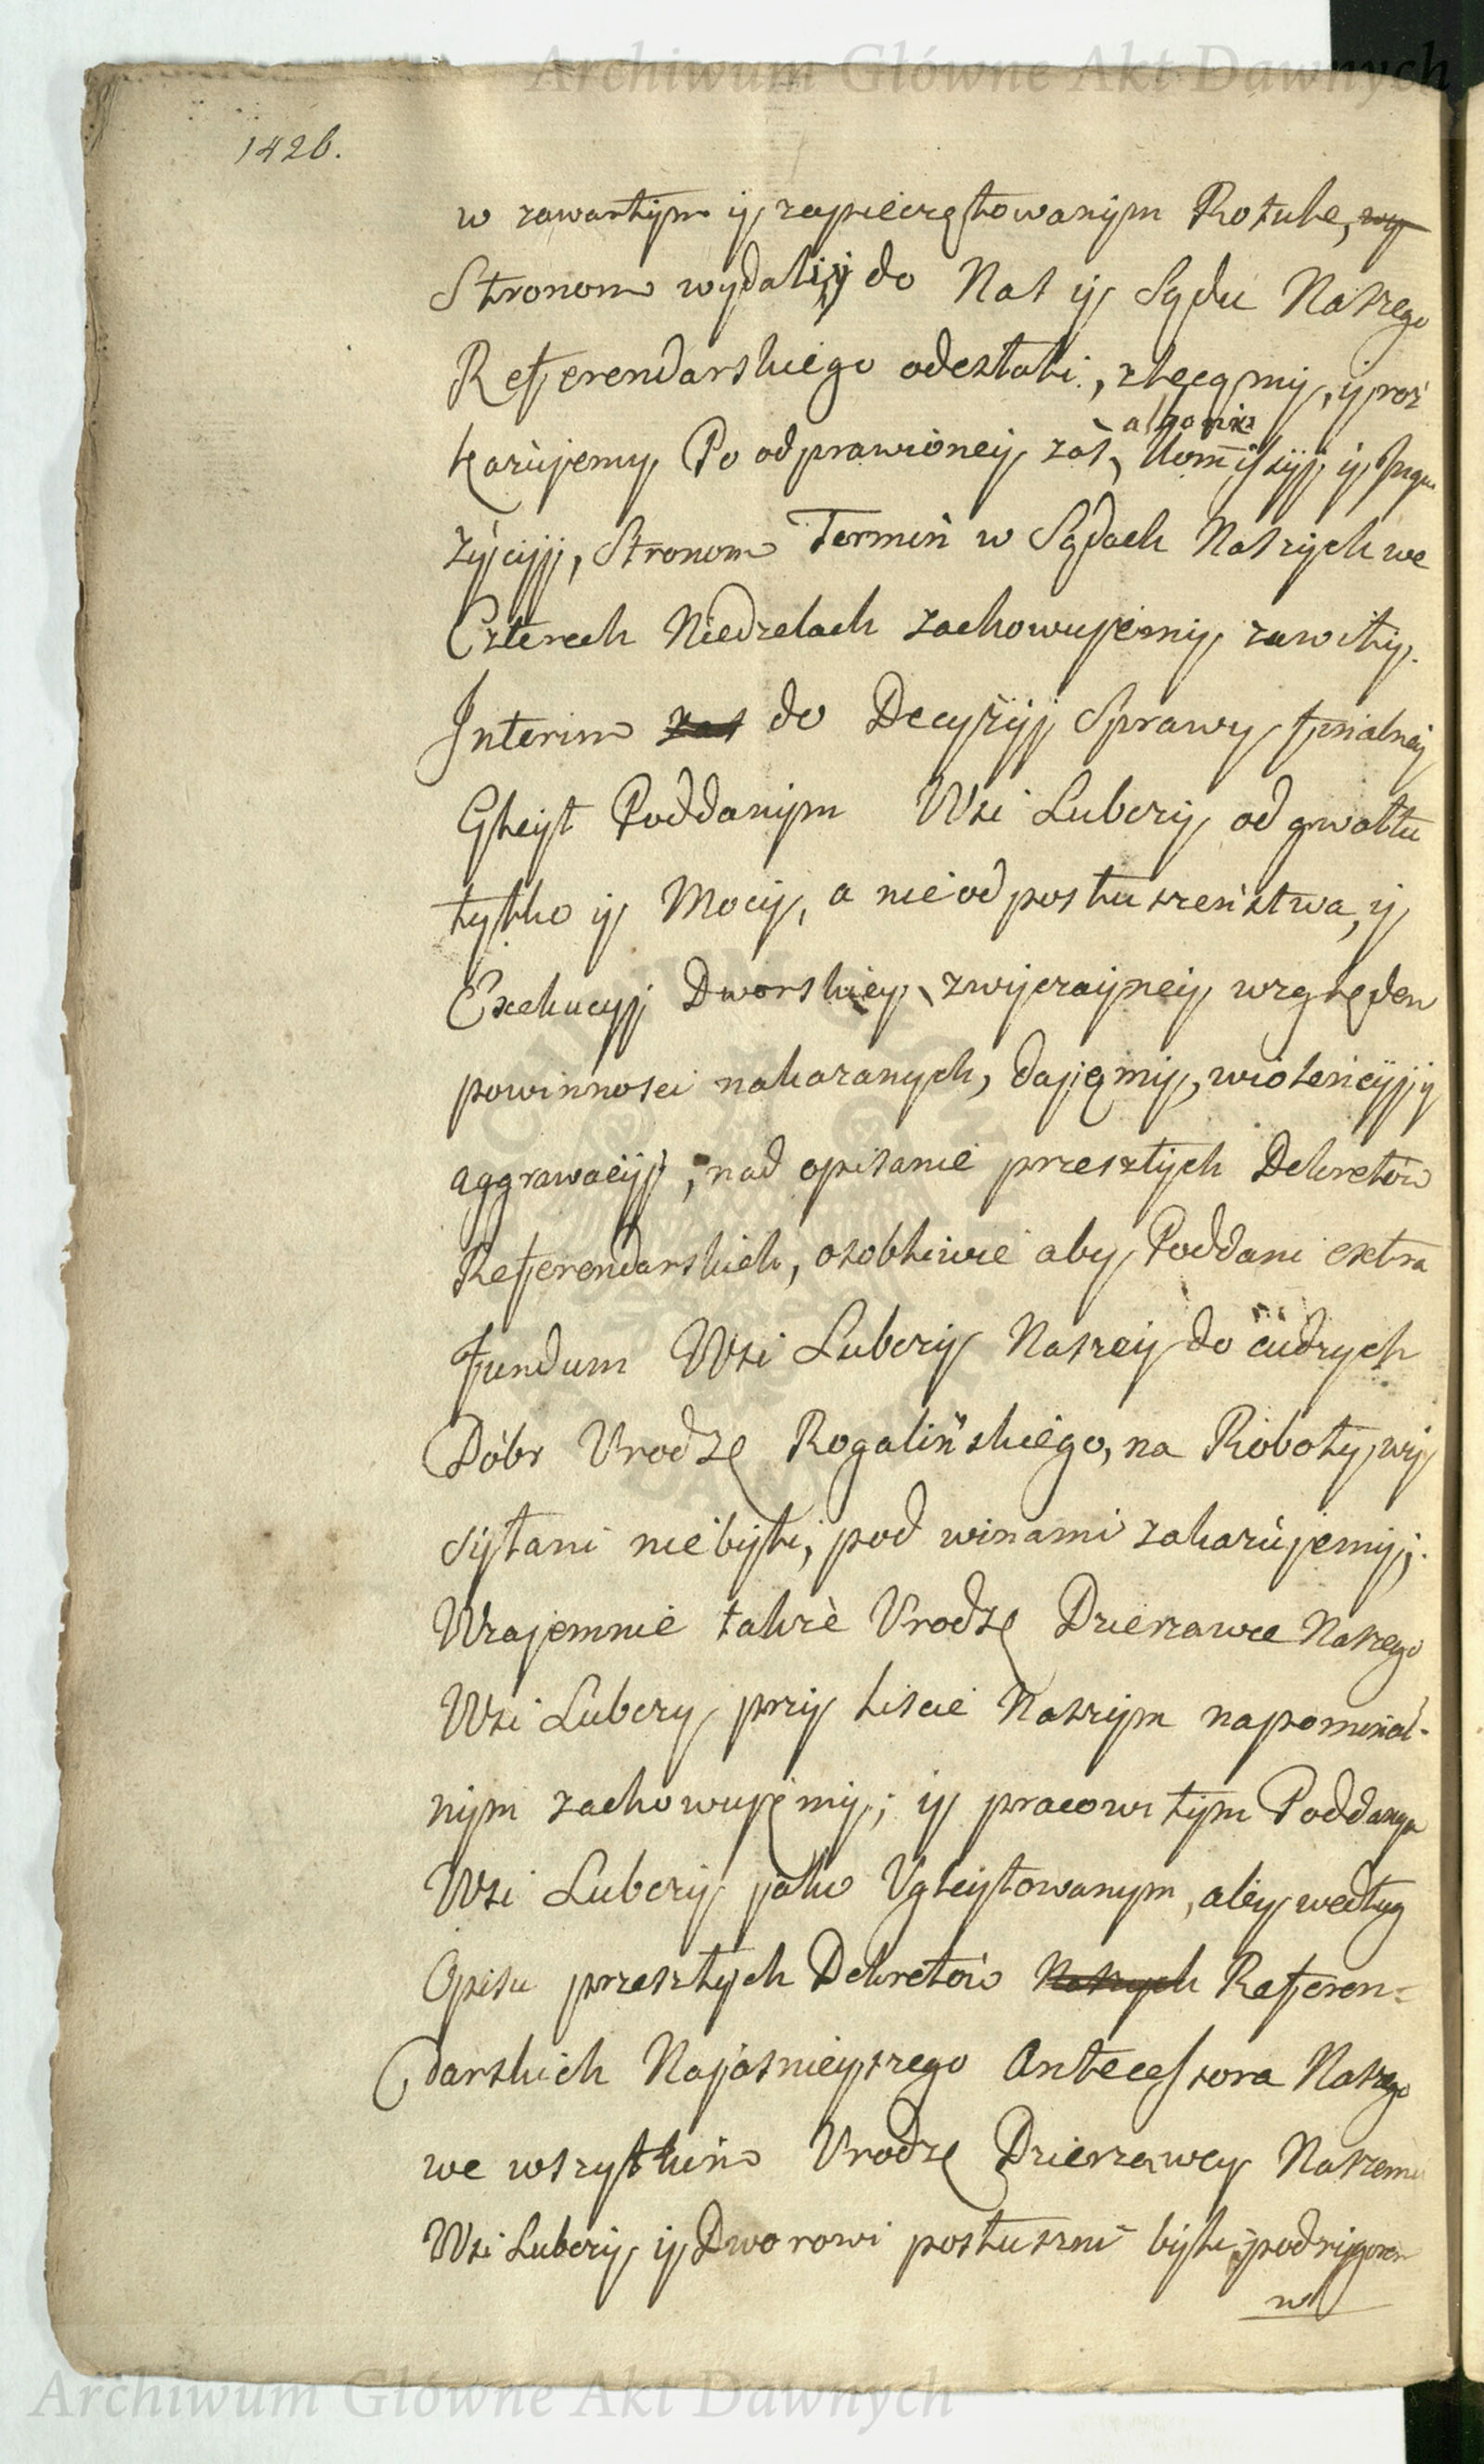 Archiwum Główne Akt Dawnych
1426.
w zawartym y zapieczętowanym Rotule, wy
Stronom wydali, y do Nas y Sądu Naszego
Referendarskiego odesłali, zlecamy, y roz
kazujemy, Po odprawioney zaś albo nie
Kommissyj y Inqui
zycyji, Stronom Termin w Sądach Naszych we
Czterech Niedzelach zachowujemy zawity.
Interim zas do Decyzyj Sprawy finalney
Gleyt Poddanym Wsi Lubczy, od gwałtu
tylko y Mocy, a nie od posłuszeństwa, y
Exekucyj Dworskiey, zwyczayney względem
powinnosci nakazanych, dajemy, violencyj y
aggrawacyj, nad opisanie przeszłych Dekretow
Referendarskich, osobliwie aby Poddani extra
fundum Wsi Lubczy Naszey do cudzych
Dóbr Urodzo Rogalińskiego, na Roboty wy
syłani nie byli, pod winami zakazujemy;
Wzajemnie takze Urodzo Dzierzawce Naszego
Wsi Lubczy przy Liscie Naszym napominal-
nym zachowujemy; y pracowitym Poddanym
Wsi Lubczy jako Ugleytowanym, aby według
Opisu przeszłych Dekretow Naszych Referen=
darskich Najasnieyszego Antecessora Naszego
we wszystkim Urodzo Dzierzawcy Naszemu
Wsi Lubczy y Dworowi posłuszni byli, pod rygorem
w
Archiwum Główne Akt Dawnych